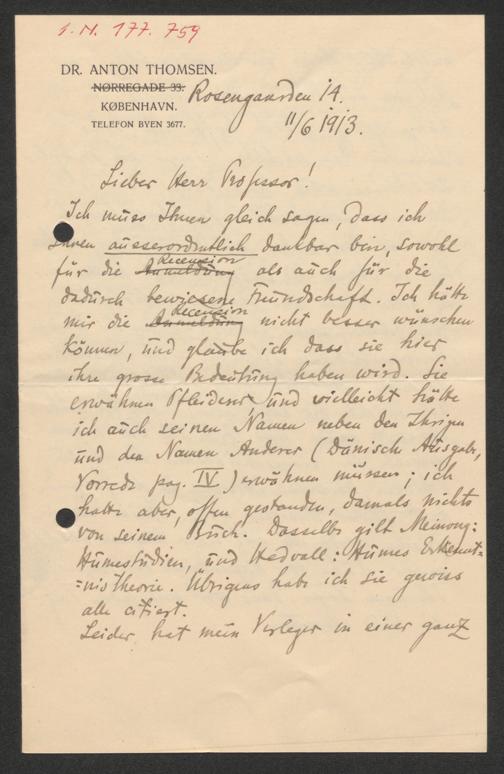 I. N. 177. 759
DR. ANTON THOMSEN.
NØRREGADE 33.
KØBENHAVN.
TELEFON BYEN 3677.
Rosengaarden 14.
11/6 1913.
Lieber Herr Professor!
Ich muss Ihnen gleich sagen, dass ich
Ihnen ausserordentlich dankbar bin, sowohl
Recension
für die Anmeldung als auch für die
dadurch bewiesene Freundschaft. Ich hätte
Recension
mir die Anmeldung nicht besser wünschen
können, und glaube ich dass sie hier
ihre grosse Bedeutung haben wird. Sie
erwähnen Pfleiderer, und vielleicht hätte
ich auch seinen Namen neben den Ihrigen
und den Namen Anderer (Dänisch Ausgabe,
Vorrede pag. IV) erwähnen müssen; ich
hatte aber, offen gestanden, damals nichts
von seinem Buch. Dasselbe gilt Meinong:
Humestudien, und Hedvall: Humes Erkennt=
=nistheorie. Übrigens habe ich sie gewiss
alle citiert.
Leider hat mein Verleger in einer ganz